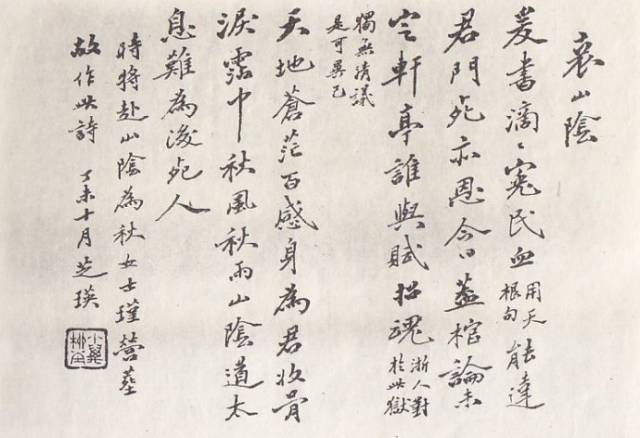 哀山陰
爰書滴〻冤民血用天根句能達
君門死亦恩今日蓋棺論未
定軒亭誰與賦招魂浙人對於此獄
獨無清議
是可異已
天地蒼茫百感身為君收骨
淚霑巾秋風秋雨山陰道太
息難為後死人
時將赴山陰為秋女士瑾營葬
故作此詩 丁未十月芝瑛
小萬柳堂